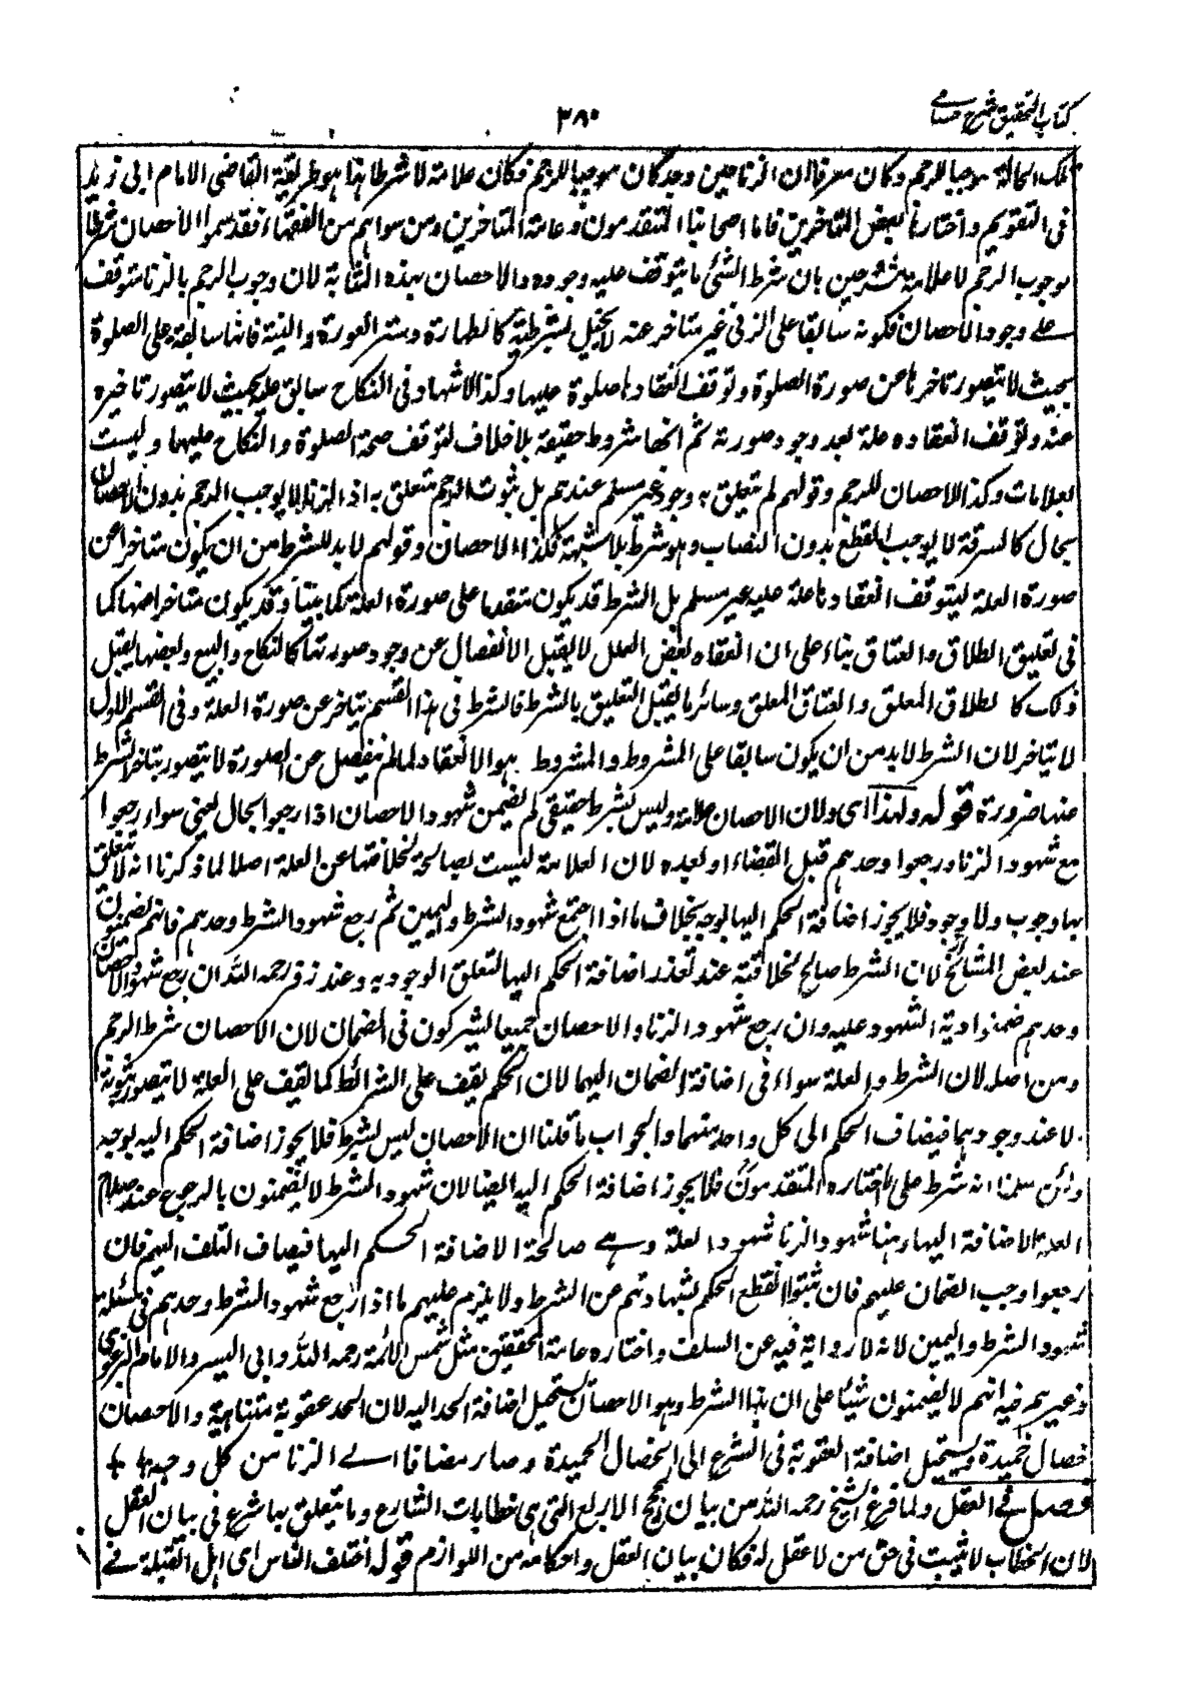 كتاب التحقيق شرح حسامي
٣٨٠
تلك الحالة موجبا للرجم وكان معرفا ان الزنا حين وجد كان موجبا للرجم فكان علامة لا شرطا هذا هو طريقة القاضي الامام ابي زيد
في التقويم واختارها بعض المتاخرين فاما اصحابنا المتقدمون وعامة المتاخرين ومن سواهم من الفقهاء فقد سموا الاحصان شرطا
لوجوب الرجم لا علامة بان شرط الشئ ما يتوقف عليه وجوده والاحصان بهذه المثابة لان وجوب الرجم بالزنا متوقف
على وجود الاحصان فكونه سابقا على الزنى غير متاخر عنه لا يخل بشرطيته كالطهارة وستر العورة والنية فانها سابقة على الصلوة
بحيث لا يتصور تاخرها عن صورة الصلوة وتوقف انعقادها صلوة عليها وكذا الاشهاد في النكاح سابق عليه بحيث لا يتصور تاخيره
عنه وتوقف انعقاده علة بعد وجود صورته ثم انها شروط حقيقة بلا خلاف لتوقف صحة الصلوة والنكاح عليها وليست
بعلامات وكذا الاحصان للرجم وقولهم لم يتعلق به وجود غير مسلم عندهم بل ثبوت الرجم متعلق به اذ الزنا لا يوجب الرجم بدون الاحصان
بحال كالسرقة لا يوجب القطع بدون النصاب وهو شرط بلا شبهة فكذا الاحصان وقولهم لا بد للشرط من ان يكون متاخرا عن
صورة العلة ليتوقف انعقادها علة عليه غير مسلم بل الشرط قد يكون متقدما على صورة العلة كما بينا وقد يكون متاخرا عنها كما
في تعليق الطلاق والعتاق بناء على ان انعقاد بعض العلل لا يقبل الانفصال عن وجود صورتها كالنكاح والبيع وبعضها يقبل
ذلك كالطلاق المعلق والعتاق المعلق وسائر ما يقبل التعليق بالشرط فالشرط في هذا القسم يتاخر عن صورة العلة وفي القسم الاول
لا يتاخر لان الشرط لا بد من ان يكون سابقا على المشروط والمشروط هو الانعقاد لما لم ينفصل عن الصورة لا يتصور تاخر الشرط
عنها ضرورة قوله ولهذا اى ولان الاحصان علامة وليس بشرط حقيقي لم يضمن شهود الاحصان اذا رجعوا بحال يعني سواء رجعوا
مع شهود الزنا ورجعوا وحدهم قبل القضاء او بعده لان العلامة ليست بصالحة لخلافتها عن العلة اصلا لما ذكرنا انه لا يتعلق
بها وجوب ولا وجود فلا يجوز اضافة الحكم اليها بوجه بخلاف ما اذا اجتمع شهود الشرط واليمين ثم رجع شهود الشرط وحدهم فانهم يضمنون
عند بعض المشائخ لان الشرط صالح لخلافته عند تعذر اضافة الحكم اليها لتعلق الوجود به وعند زفر رحمه الله ان رجع شهود الاحصان
وحدهم ضمنوا دية المشهود عليه وان رجع شهود الزنا والاحصان جميعا يشتركون في الضمان لان الاحصان شرط الرجم
ومن اصله لان الشرط والعلة سواء في اضافة الضمان اليهما لان الحكم يقف على الشرائط كما يقف على العلة لا يتصور ثبوته
لا عند وجودهما فيضاف الحكم الى كل واحد منهما والجواب ما قلنا ان الاحصان ليس بشرط فلا يجوز اضافة الحكم اليه بوجه
ولئن سلمنا انه شرط على ما اختاره المتقدمون فلا يجوز اضافة الحكم اليه ايضا لان شهود الشرط لا يضمنون بالرجوع عند صلاح
العلة لاضافة اليها وهنا شهود الزنا شهود العلة وهي صالحة لاضافة الحكم اليها فيضاف التلف اليهم فان
رجعوا وجب الضمان عليهم فان ثبتوا انقطع الحكم بشهادتهم عن الشرط ولا يلزم عليهم ما اذا رجع شهود الشرط وحدهم في مسئلة
شهود الشرط واليمين لانه لا رواية فيه عن السلف واختاره عامة المحققين مثل شمس الائمة رحمه الله وابي اليسر والامام البزدوى
وغيرهم فيه انهم لا يضمنون شيئا على ان هذا الشرط وهو الاحصان يستحيل اضافة الحد اليه لان الحد عقوبة متناهية والاحصان
خصال حميدة ويستحيل اضافة العقوبة في الشرع الى الخصال الحميدة وصار مضافا الى الزنا من كل وجه
فصل في العقل ولما فرغ الشيخ رحمه الله من بيان الحجج الاربع التي هي خطابات الشارع وما يتعلق بها شرع في بيان العقل
لان الخطاب لا يثبت في حق من لا عقل له فكان بيان العقل واحكامه من اللوازم قوله اختلف الناس اى اهل القبلة في